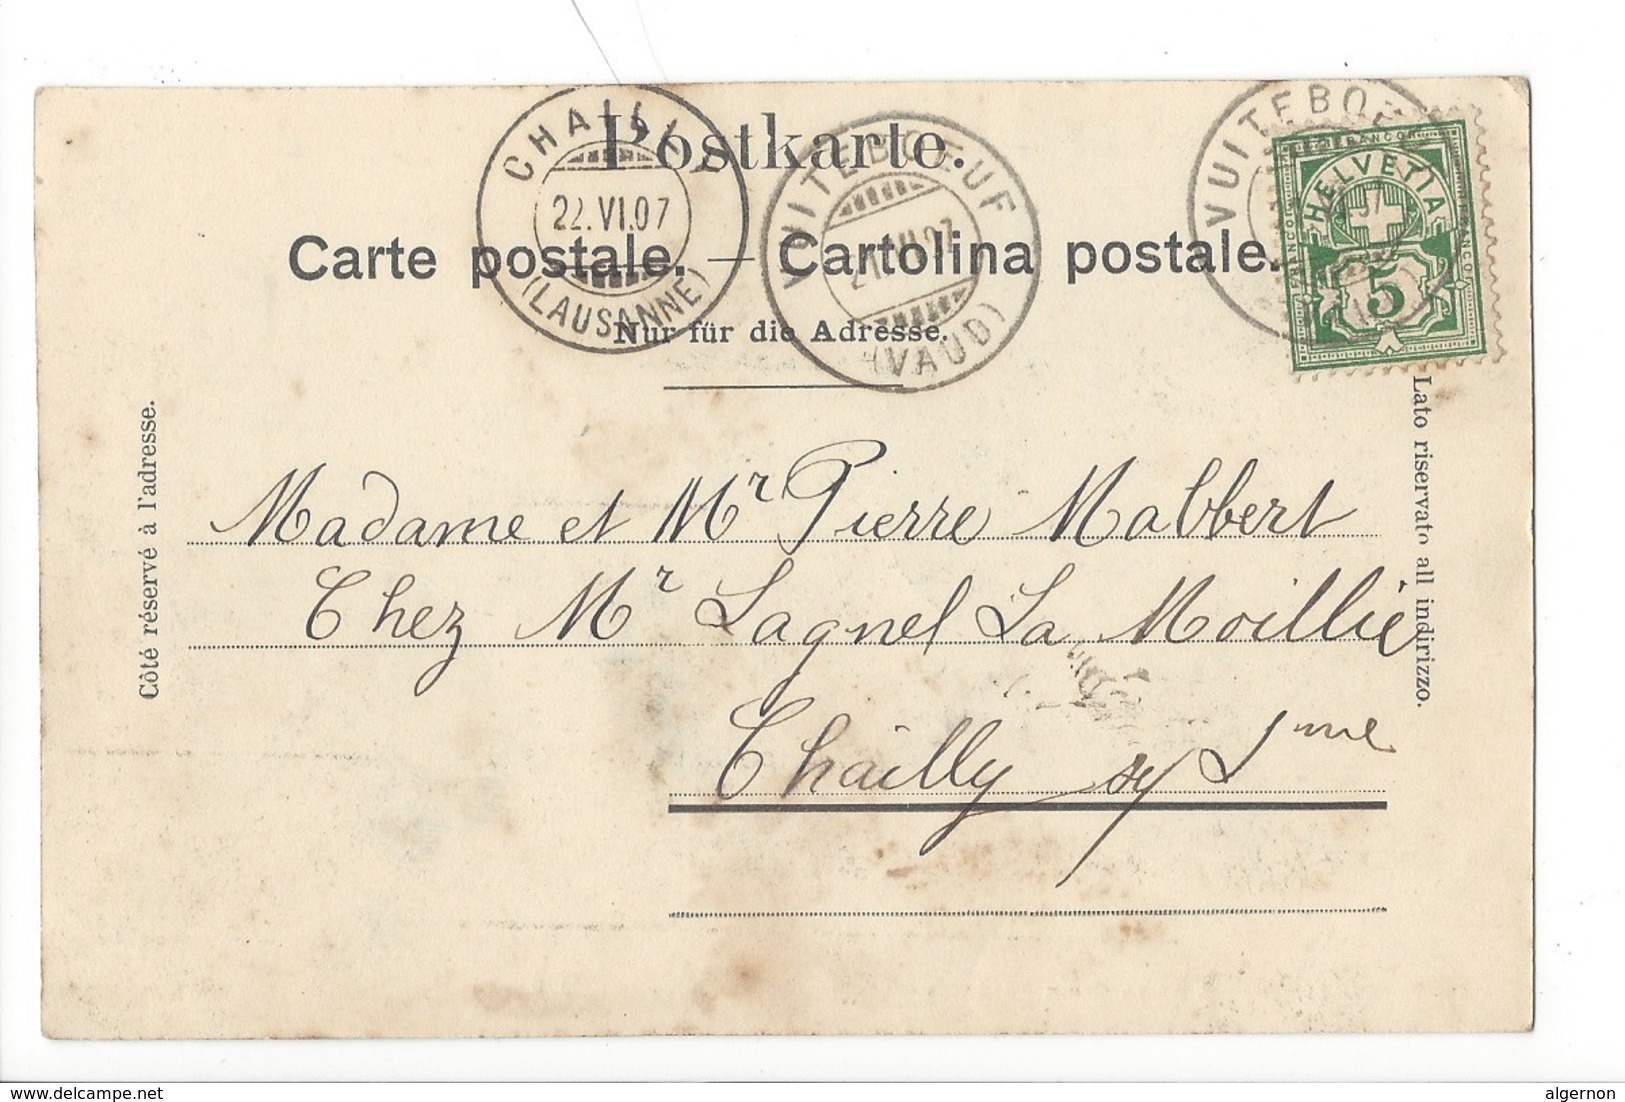 Postkarte.
CHAILLY
22.VI.07
(LAUSANNE)
VUITEBOEUF
(VAUD)
VUITEBOEUF
FRANCO
HELVETIA
5
Carte postale. — Cartolina postale.
Nur für die Adresse.
Côté réservé à l'adresse.
Lato riservato all indirizzo.
Madame et Mr Pierre Mabbert
Chez Mr Lagnel La Moillie
Chailly s/ Lme
www.delcampe.net
algernon